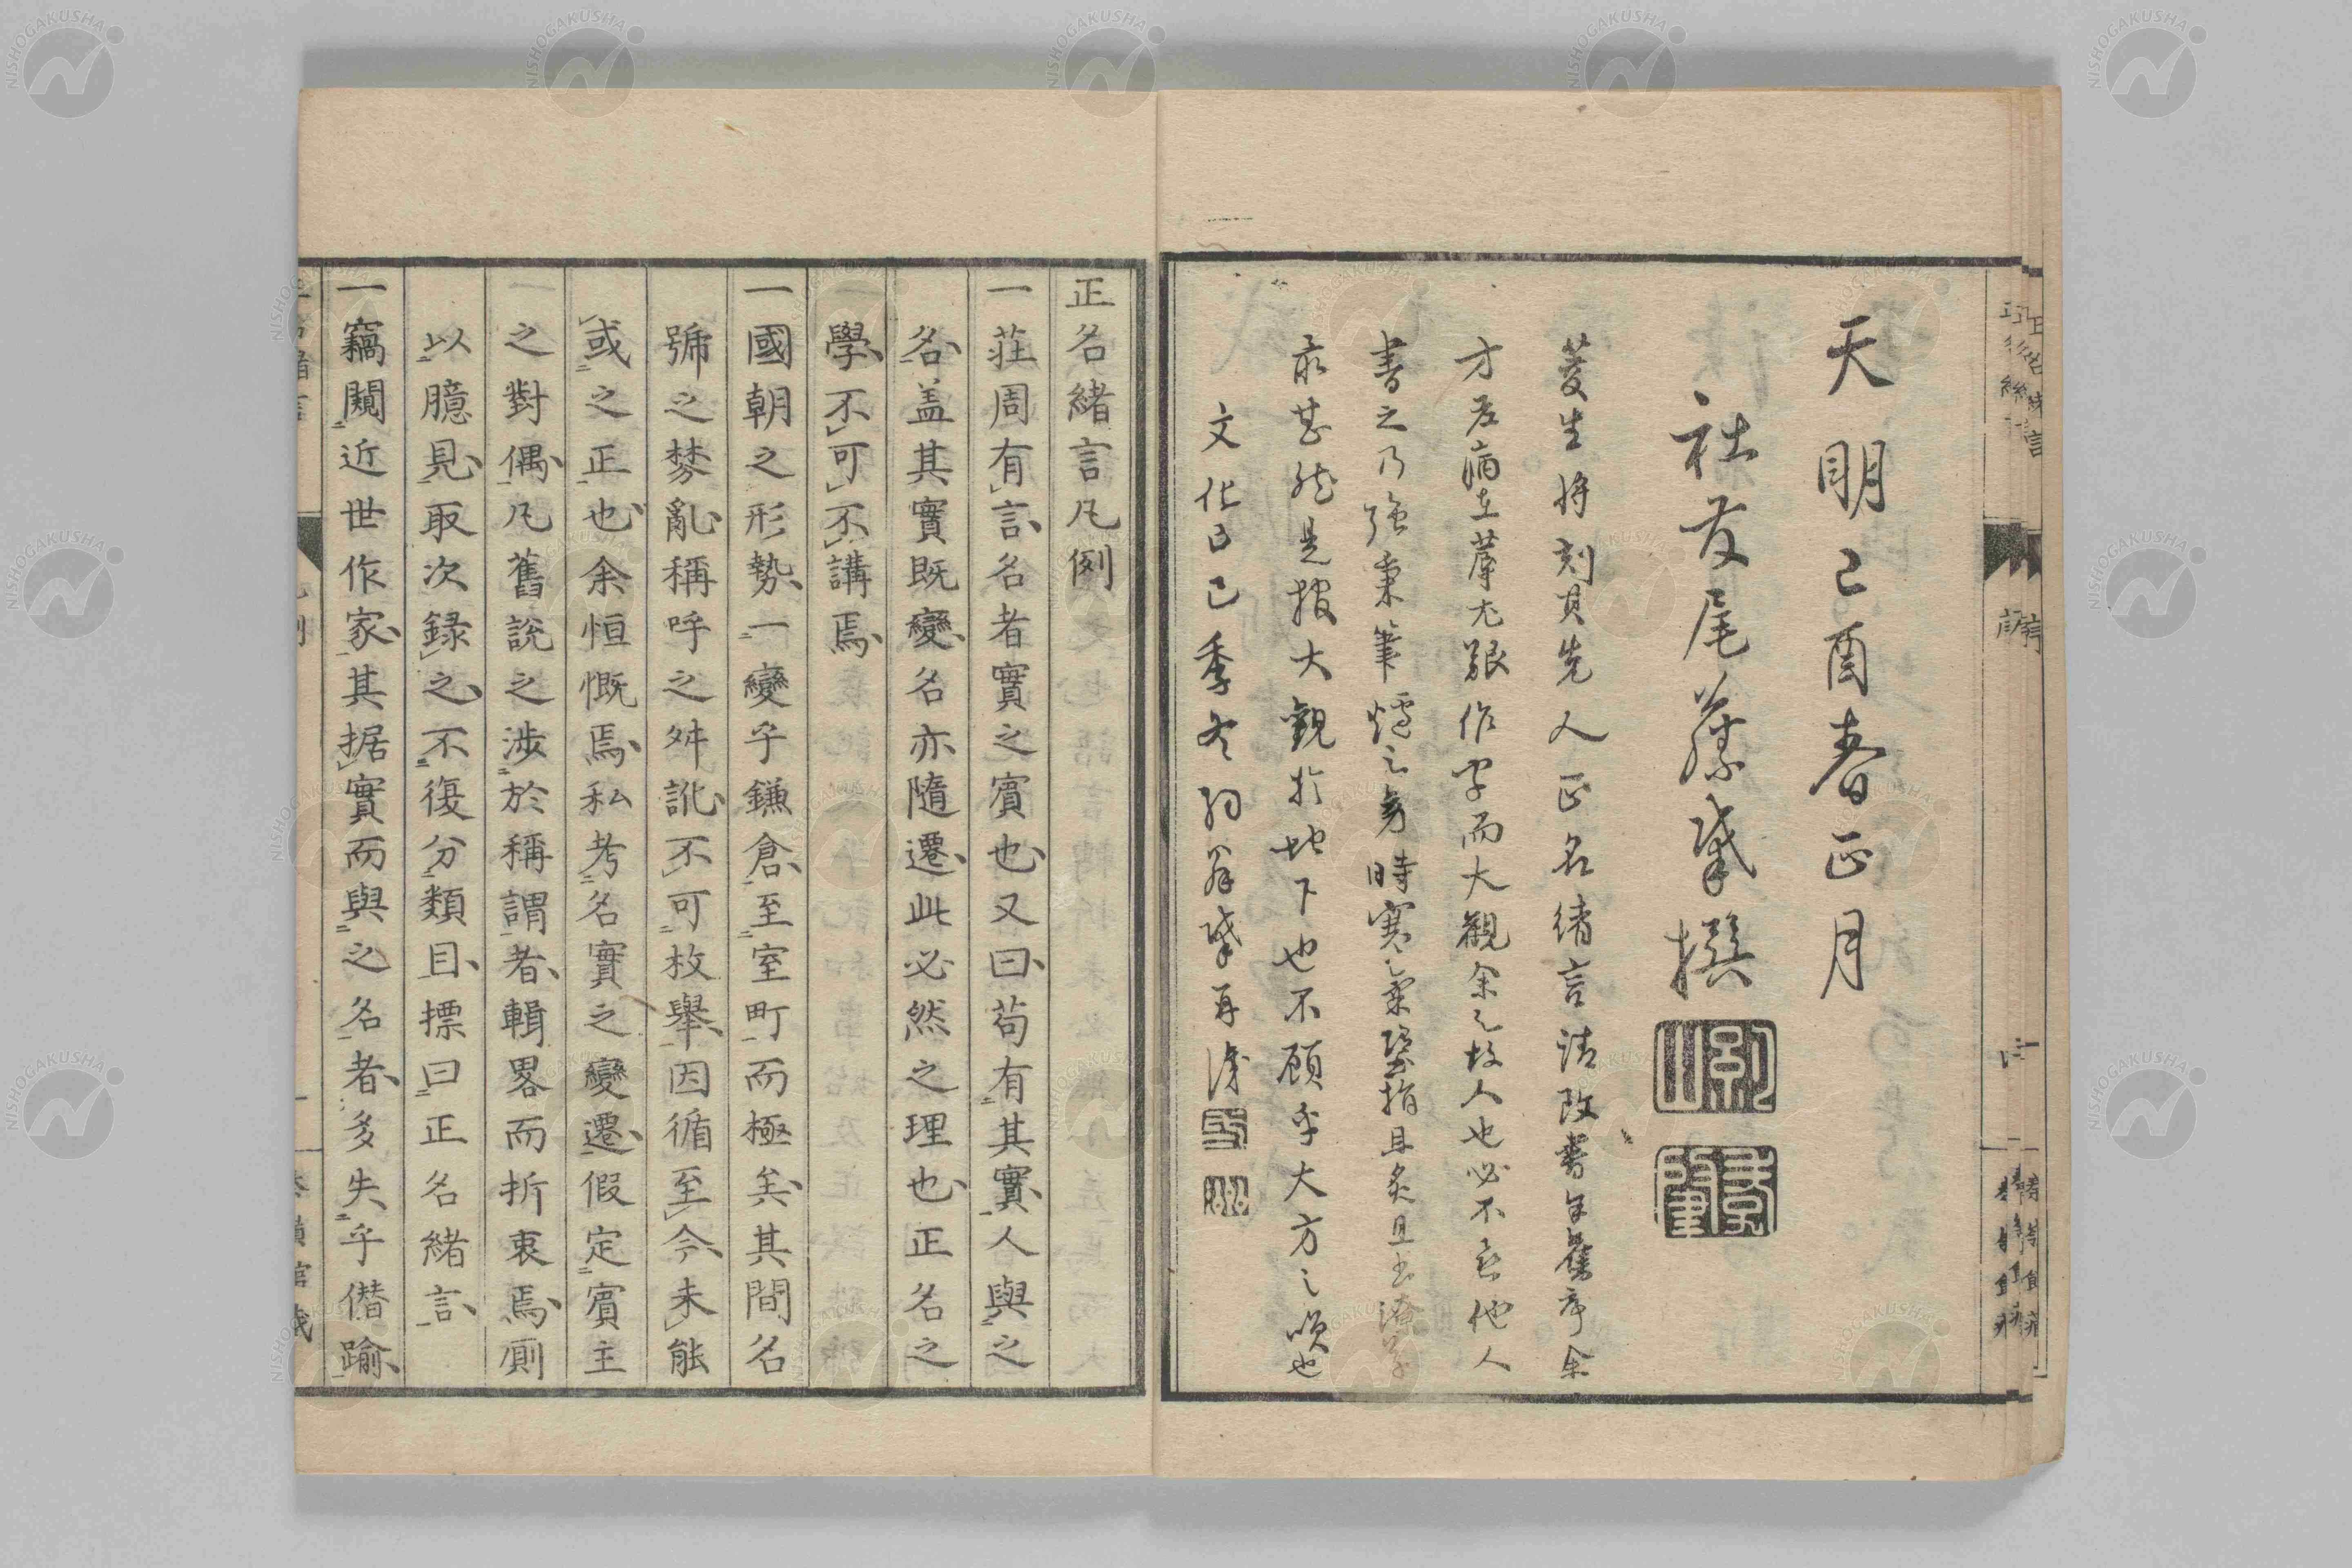 天明己酉春正月
社友尾藤肇撰
菱生将刻其先人正名緒言請改書年舊序余
方左痛在蓐尤艱作字而大觀余之故人也必不欲他人
書之乃強秉筆時寒氣墜指且炙且書潦草
最甚然是報大觀於地下也不顧乎大方之唄也
文化己巳季冬翁肇再
正名緒言凡例
一莊周有言名者實之賓也又曰苟有其實人與之
名盖其實既變名亦隨遷此必然之理也正名之
學不可不講焉
一國朝之形勢一變乎鎌倉至室町而極矣其間名
號之棼亂稱呼之舛訛不可枚舉因循至今未能
或之正也余恒慨焉私考名實之變遷假定賓主
之對偶凡舊説之渉於稱謂者輯畧而折衷焉厠
以臆見取次録之不復分類目摽曰正名緒言
一竊闚近世作家其据實而與之名者多失乎僭踰
NISHOGAKUSHA